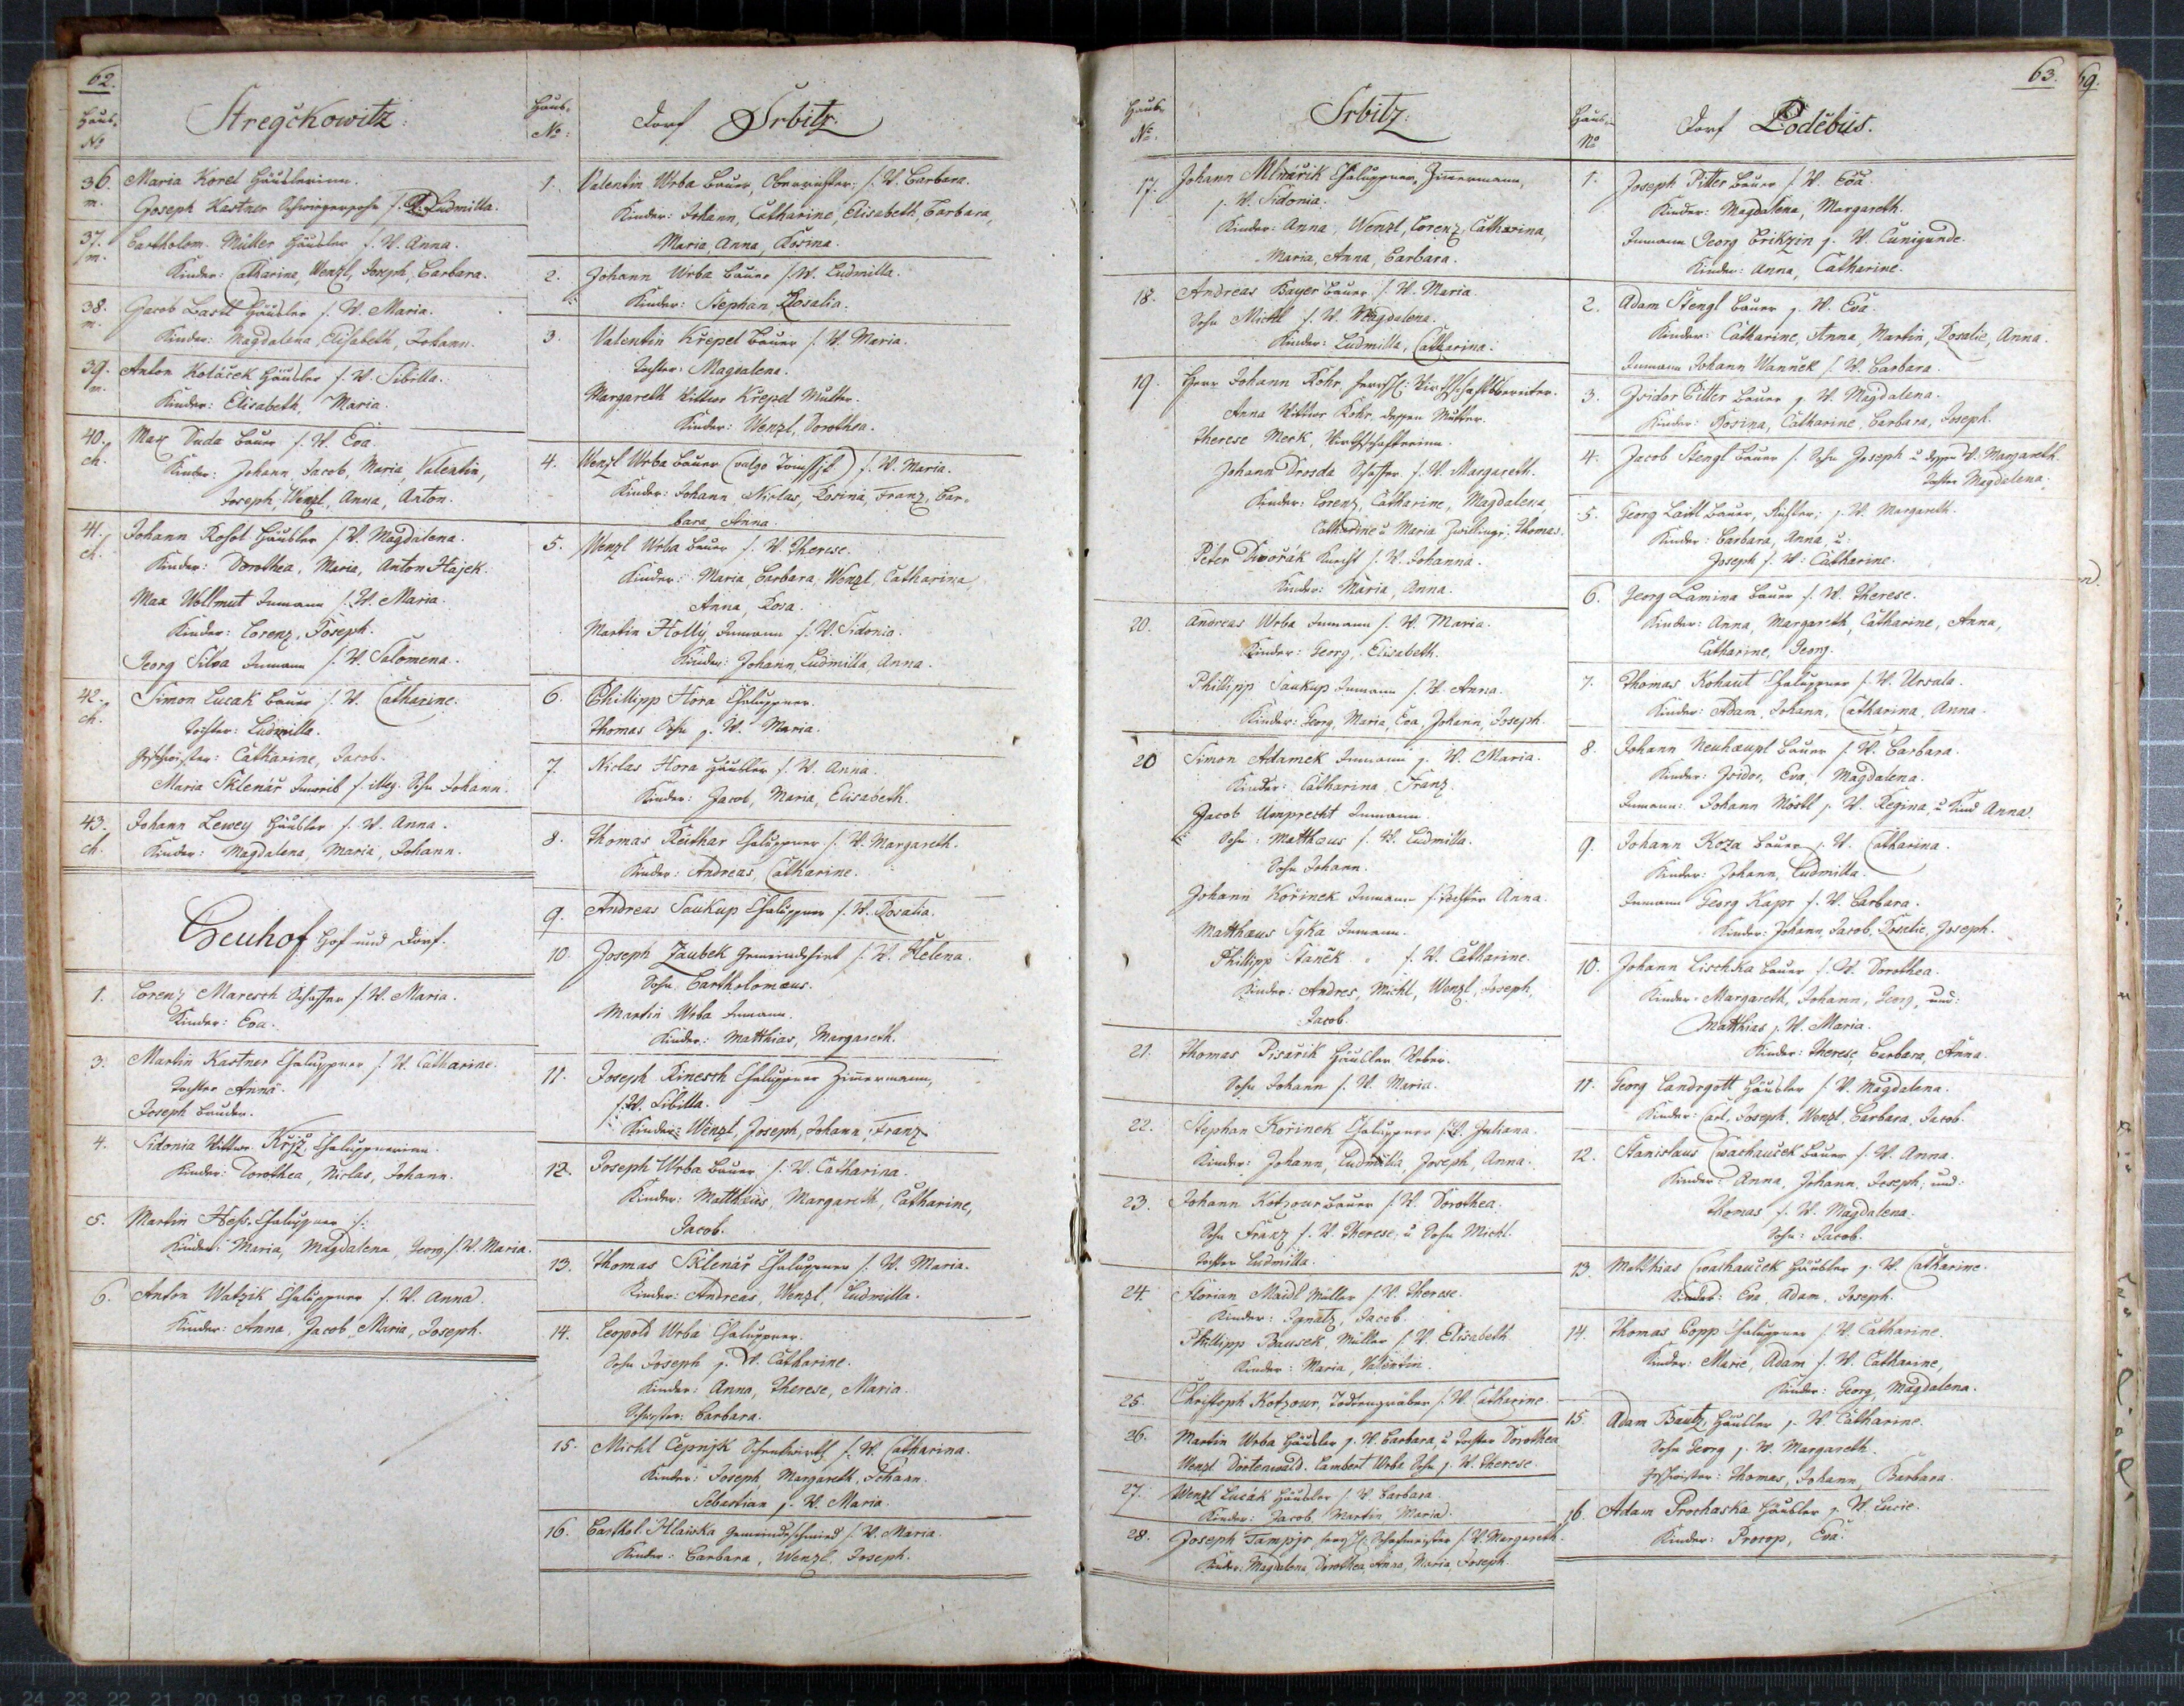 62.
Haus-
No
Stregčkowitz.
36. Maria Korel Häuslerinn.
m. Joseph Kastner Schwiegersohn s. W. Ludmilla.
37. Bartholom. Müller Häusler s. W. Anna.
m. Kinder: Catharina, Wenzl, Joseph, Barbara.
38. Jacob Bastl Häusler s. W. Maria.
m. Kinder: Magdalena, Elisabeth, Johann.
39. Anton Koláček Häusler s. W. Sibilla.
m. Kinder: Elisabeth, Maria.
40. Max Duda Bauer s. W. Eva.
ch. Kinder: Johann, Jacob, Maria, Valentin,
Joseph, Wenzl, Anna, Anton.
41. Johann Kohol Häusler s. W. Magdalena.
ch. Kinder: Dorothea, Maria, Anton Hajek.
Max Wollmut Inmann s. W. Maria.
Kinder: Lorenz, Joseph.
Georg Silva Inmann s. W. Salomena.
42. Simon Lucak Bauer s. W. Catharine.
ch. Tochter: Ludmilla.
Geschwister: Catharine, Jacob.
Maria Sklenář Inweib s. illeg. Sohn Johann.
43. Johann Lewey Häusler s. W. Anna.
ch. Kinder: Magdalena, Maria, Johann.
Neuhof Hof und Dorf.
1. Lorenz Maresch Schaffer s. W. Maria.
Kinder: Eva.
3. Martin Kastner Chaluppner s. W. Catharine.
Tochter Anna.
Joseph Bruder.
4. Sidonia Wittwe Křjž, Chaluppnerinn.
Kinder: Dorothea, Niclas, Johann.
5. Martin Heß. Chaluppner
Kinder: Maria, Magdalena, Georg, s. W. Maria.
6. Anton Watzik Chaluppner s. W. Anna.
Kinder: Anna, Jacob, Maria, Joseph.
Haus-
No:
Dorf Srbitz.
1. Valentin Wrba Bauer, Oberrichter, s. W. Barbara.
Kinder: Johann, Catharine, Elisabeth, Barbara,
Maria, Anna, Rosina.
2. Johann Wrba Bauer s. W. Ludmilla.
Kinder: Stephan, Rosalia.
3. Valentin Křepel Bauer s. W. Maria.
Tochter: Magdalena.
Margareth Wittwe Křepel Mutter.
Kinder: Wenzl, Dorothea.
4. Wenzl Wrba Bauer (vulgo) s. W. Maria.
Kinder: Johann, Niclas, Rosina, Franz, Bar-
bara, Anna.
5. Wenzl Wrba Bauer s. W. Therese.
Kinder: Maria, Barbara, Wenzl, Catharina
Anna, Rosa.
Martin Hollý, Inmann s. W. Sidonia.
Kinder: Johann, Ludmilla, Anna.
6. Phillipp Hora Chaluppner.
Thomas Sohn s. W. Maria.
7. Niclas Hora Häusler s. W. Anna.
Kinder: Jacob, Maria, Elisabeth.
8. Thomas Reithar Chaluppner s. W. Margareth.
Kinder: Andreas, Catharine.
9. Andreas Saukup Chaluppner s. W. Rosalia.
10. Joseph Zaubek Gemeindhirt s. W. Helena.
Sohn Bartholomæus.
Martin Wrba Inmann.
Kinder: Matthias, Margareth.
11. Joseph Rinesch Chaluppner Zimermann,
s. W. Sibilla.
Kinder: Wenzl, Joseph, Johann, Franz.
12. Joseph Wrba Bauer s. W. Catharina.
Kinder: Matthæus, Margareth, Catharine,
Jacob.
13. Thomas Sklenář Chaluppner s. W. Maria.
Kinder: Andreas, Wenzl, Ludmilla.
14. Leopold Wrba Chaluppner.
Sohn Joseph s. W. Catharine.
Kinder: Anna, Therese, Maria.
Schwester: Barbara.
15. Michl Čepnjk Schenkwirth s. W. Catharina.
Kinder: Joseph, Margareth, Johann.
Sebastian s. W. Maria.
16. Barthol. Hlawka Gemeindeschmied s. W. Maria.
Kinder: Barbara, Wenzl, Joseph.
Haus-
No.
Srbitz.
17. Johann Mlnařik Chaluppner, Zimermann,
s. W. Sidonia.
Kinder: Anna, Wenzl, Lorenz, Catharina,
Maria, Anna, Barbara.
18. Andreas Bayer Bauer s. W. Maria.
Sohn Michl s. W. Magdalena.
Kinder: Ludmilla, Catharina.
19. Herr Johann Kohr, herrschl. Wirthschaftsbereiter.
Anna Wittwe Kohr dessen Mutter.
Therese Merk, Wirthschafterinn.
Johann Drosda Schaffer s. W. Margareth.
Kinder: Lorenz, Catharine, Magdalena,
Catharine u Maria Zwillinge, Thomas.
Peter Dwořák Knecht s. W. Johanna.
Kinder: Maria, Anna.
20. Andreas Wrba Inmann s. W. Maria.
Kinder: Georg, Elisabeth.
Phillipp Saukup Inmann s. W. Anna.
Kinder: Georg, Maria, Eva, Johann, Joseph.
20 Simon Adamek Inmann s. W. Maria.
Kinder: Catharina, Franz.
Jacob Umprecht Inmann.
Sohn: Matthæus s. W. Ludmilla.
Sohn Johann.
Johann Kořinek Inmann s. Tochter Anna.
Matthæus Syka Inmann.
Phillipp Staněk s. W. Catharine.
Kinder: Andres, Michl, Wenzl, Joseph,
Jacob.
21. Thomas Pisařik Häusler Weber.
Sohn Johann s. W. Maria.
22. Stephan Kořinek Chaluppner s. W. Juliana.
Kinder: Johann, Ludmilla, Joseph, Anna.
23. Johann Kotzour Bauer s. W. Dorothea.
Sohn Franz s. W. Therese, u Sohn Michl.
Tochter Ludmilla.
24. Florian Maidl Müller s. W. Therese.
Kinder: Ignatz, Jacob.
Phillipp Bausek Müller s. W. Elisabeth.
Kinder: Maria, Valentin.
25. Christoph Kotzour, Todtengräber s. W. Catharine.
26. Martin Wrba Häusler s. W. Barbara, u Tochter Dorothea
Wenzl Dortenwald. Lambert Wrba Sohn s. W. Therese.
27. Wenzl Lucák Häusler s. W. Barbara.
Kinder: Jacob, Martin, Maria.
28. Joseph Tampjr, herrschl. Schafmeister s. W. Margareth.
Kinder: Magdalena, Dorothea, Anna, Maria, Joseph.
63.
Haus-
No
Dorf Podebus.
1. Joseph Pitter Bauer s. W. Eva.
Kinder: Magdalena, Margareth.
Inmann Georg Brikzin s. W. Cunigunde.
Kinder: Anna, Catharine.
2. Adam Stengl Bauer s. W. Eva.
Kinder: Catharine, Anna, Martin, Rosalie, Anna.
Inmann Johann Wannek s. W. Barbara.
3. Isidor Pitter Bauer s. W. Magdalena.
Kinder: Rosina, Catharine, Barbara, Joseph.
4. Jacob Stengl Bauer s. Sohn Joseph u dessen W. Margareth
Tochter Magdalena.
5. Georg Laitl Bauer, Richter, s. W. Margareth.
Kinder: Barbara, Anna, u:
Joseph s. W: Catharine.
6. Georg Lamina Bauer s. W. Therese.
Kinder: Anna, Margareth, Catharine, Anna,
Catharine, Georg.
7. Thomas Kohaut Chaluppner s. W. Ursala.
Kinder: Adam, Johann, Catharina, Anna.
8. Johann Neuhaupl Bauer s. W. Barbara.
Kinder: Isidor, Eva, Magdalena.
Inmann: Johann Nöstl s. W. Regina, u Kind Anna.
9. Johann Koza Bauer s. W. Catharina.
Kinder: Johann, Ludmilla.
Inmann Georg Kapr s. W. Barbara.
Kinder: Johann, Jacob, Rosalie, Joseph.
10. Johann Lischka Bauer s. W. Dorothea.
Kinder: Margareth, Johann, Georg, und:
Matthias s. W. Maria.
Kinder: Therese, Barbara, Anna.
11. Georg Landrgott Häusler s. W. Magdalena.
Kinder: Carl, Joseph, Wenzl, Barbara, Jacob.
12. Stanislaus Cwachauček Bauer s. W. Anna.
Kinder: Anna, Johann, Joseph, und:
Thomas s. W. Magdalena.
Sohn: Jacob.
13. Matthias Cwachauček Häusler s. W. Catharine.
Kinder: Eva, Adam, Joseph.
14. Thomas Popp Chaluppner s. W. Catharine.
Kinder: Marie, Adam s. W. Catharine,
Kinder: Georg, Magdalena.
15. Adam Bautz, Häusler s. W. Catharine.
Sohn Georg s. W. Margareth.
Geschwister: Thomas, Johann, Barbara.
16. Adam Prochaska Häusler s. W. Lucie.
Kinder: Procop, Eva.
69.